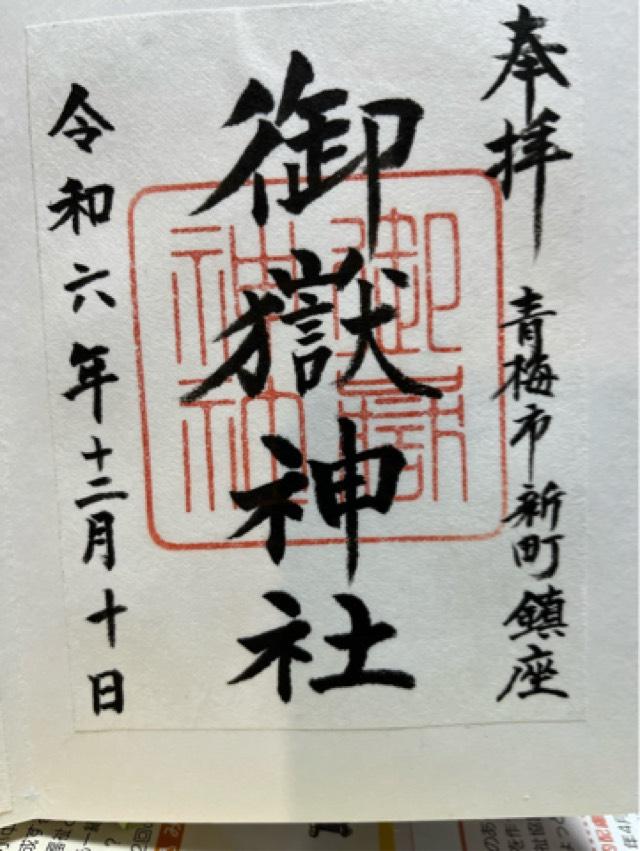 奉拝
青梅市新町鎮座
御嶽神社
令和六年十二月十日